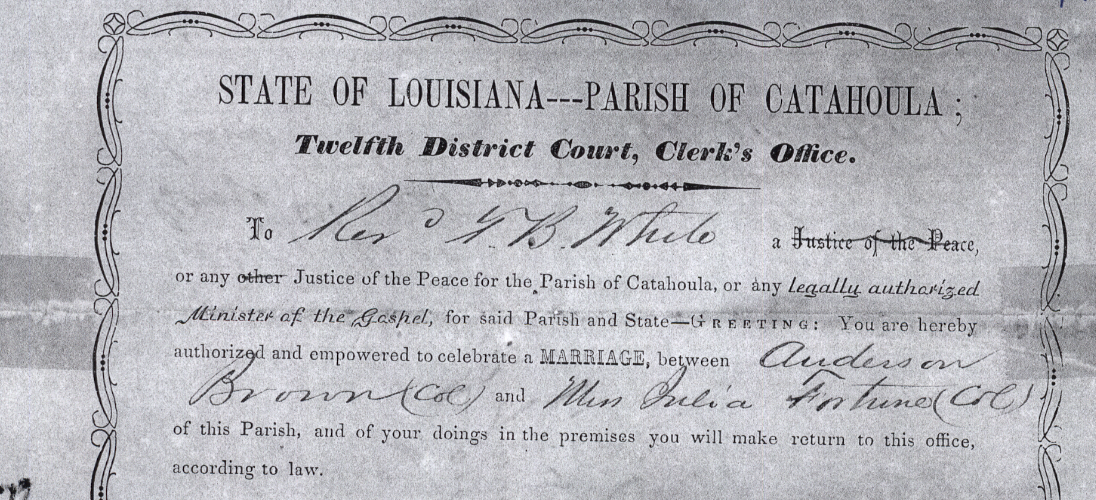 STATE OF LOUISIANA---PARISH OF CATAHOULA;
Twelfth District Court, Clerk's Office.
To Revd G. B. White a Justice of the Peace,
or any other Justice of the Peace for the Parish of Catahoula, or any legally authorized
Minister of the Gospel, for said Parish and State—GREETING: You are hereby
authorized and empowered to celebrate a MARRIAGE, between Anderson
Brown (Col) and Miss Julia Fortune (Col)
of this Parish, and of your doings in the premises you will make return to this office,
according to law.